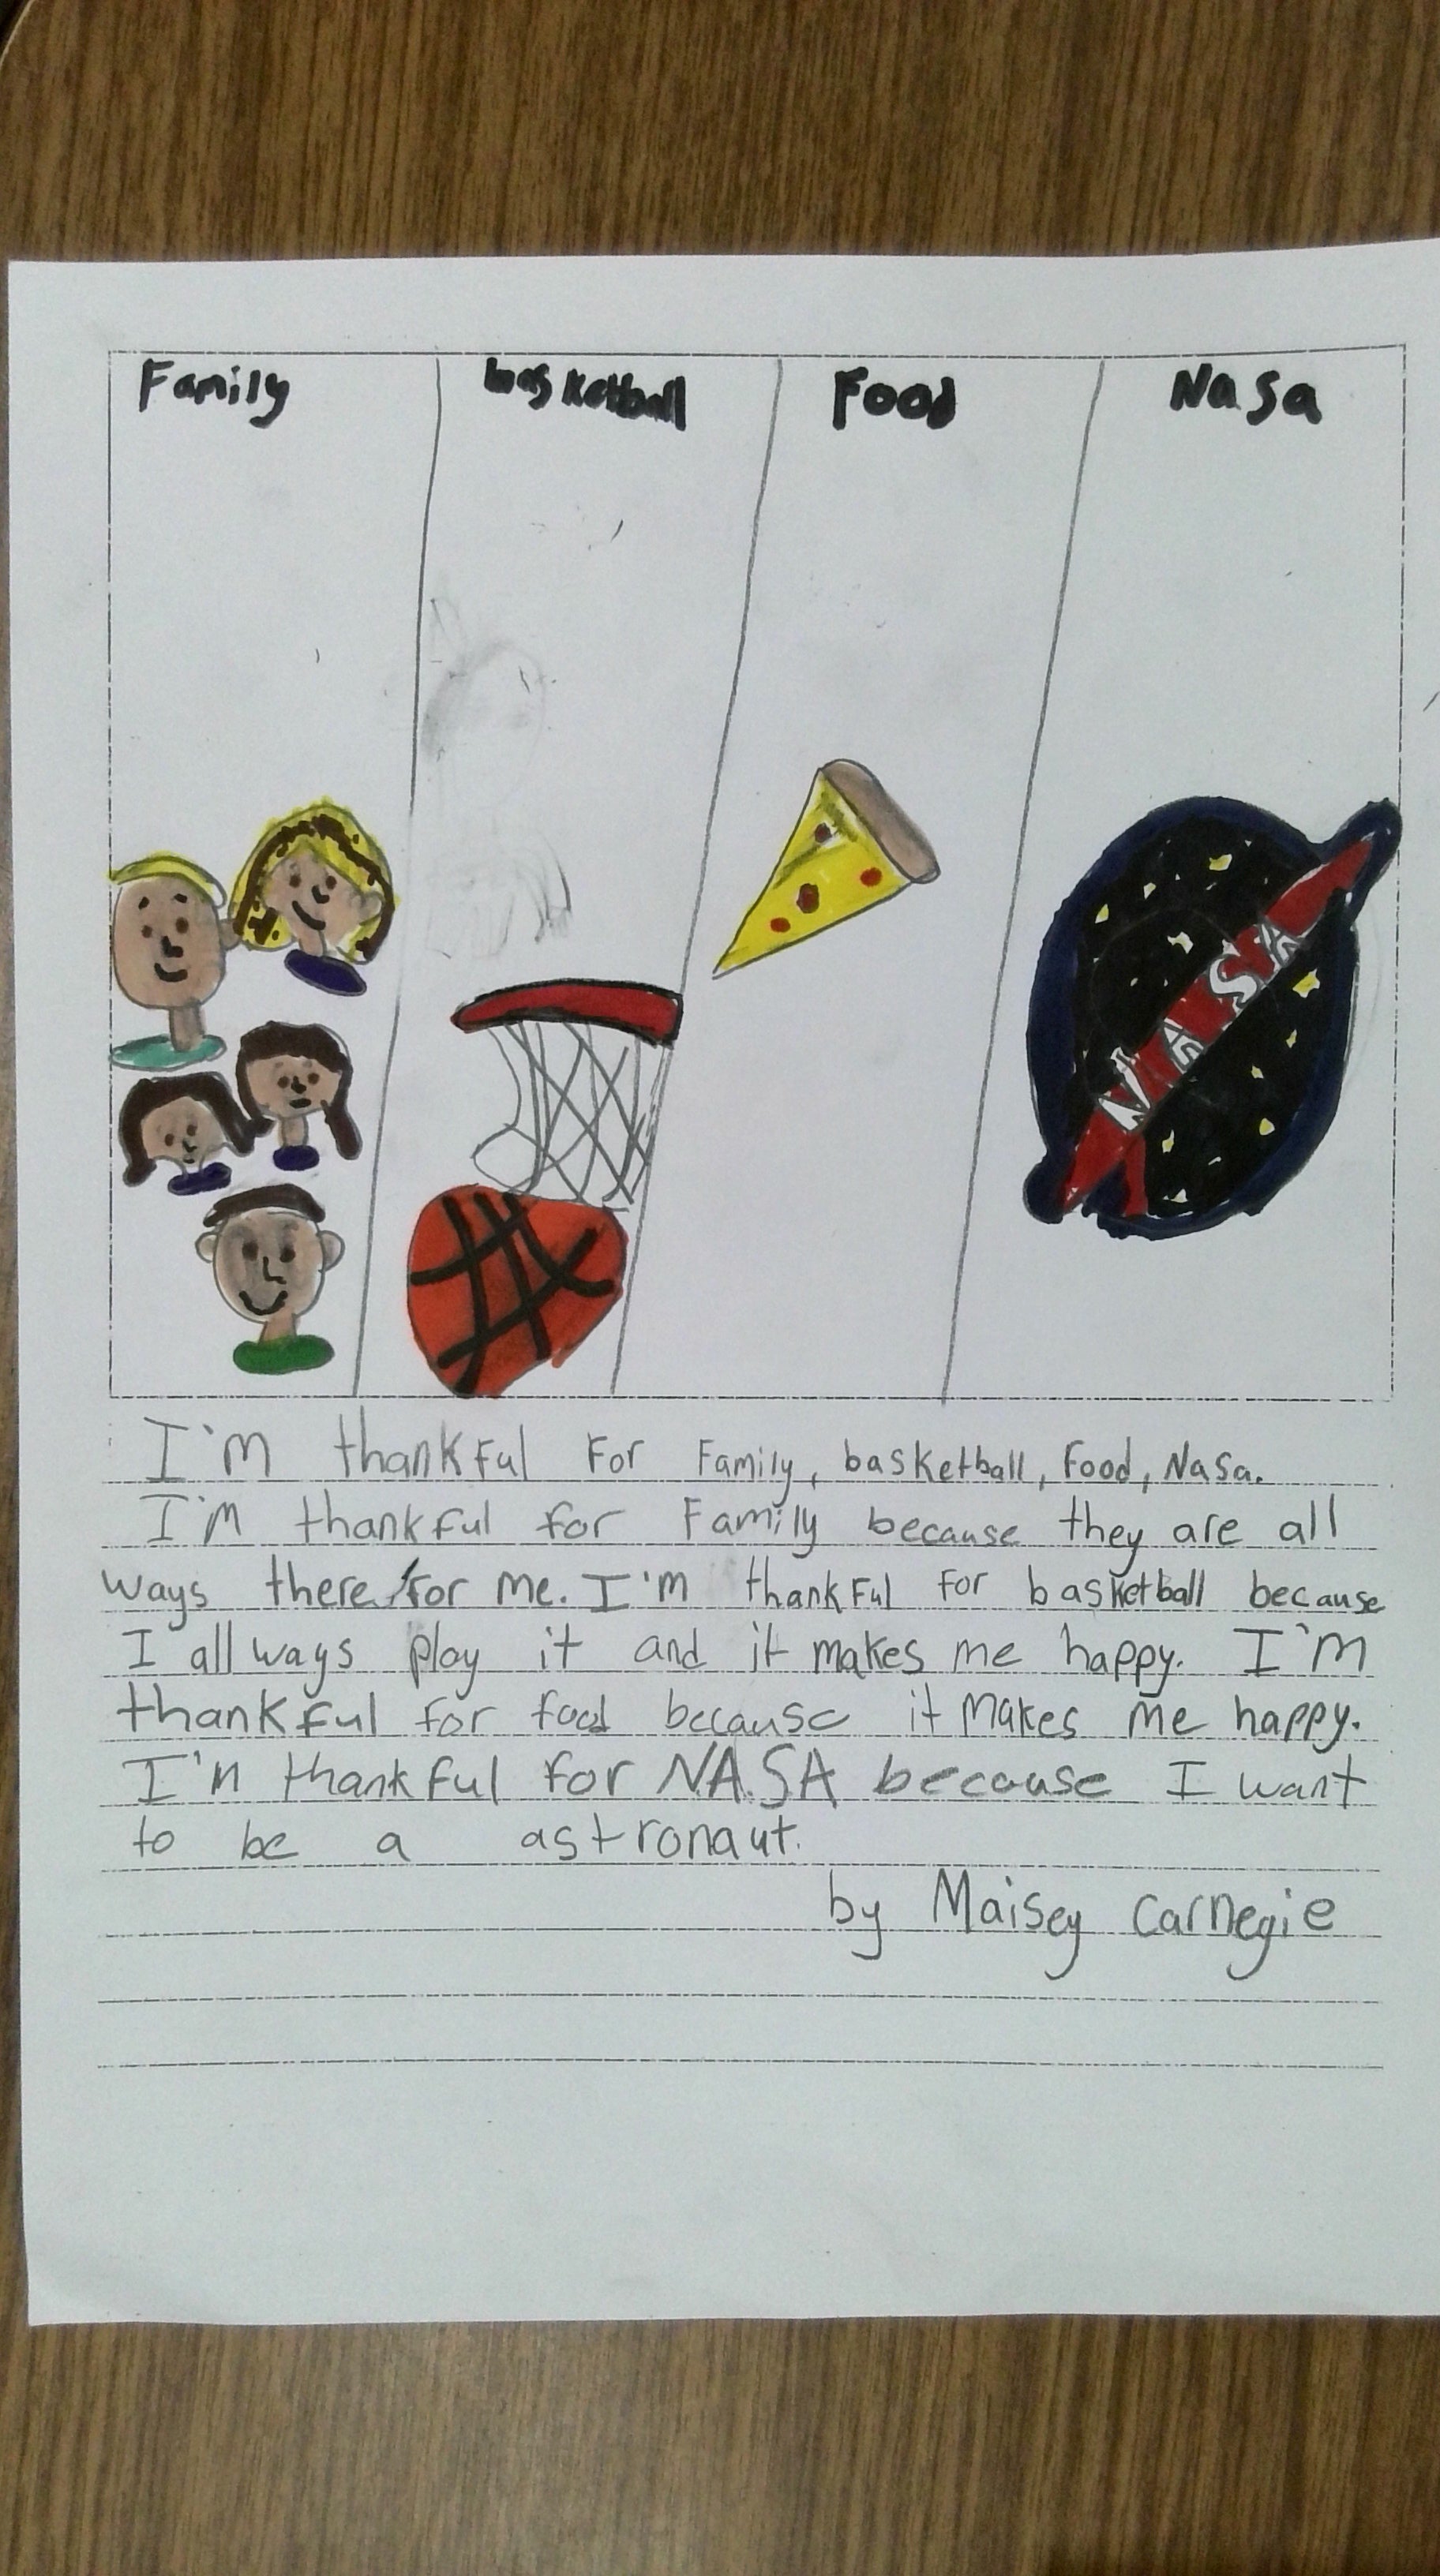 Family basketball Food Nasa
NASA
I'm thankful For Family, basketball, Food, Nasa.
I'm thankful for Family because they are all
ways there for me. I'm thankful for basketball because
I all ways play it and it makes me happy. I'm
thankful for food because it makes me happy.
I'm thankful for NASA because I want
to be a astronaut.
by Maisey Carnegie